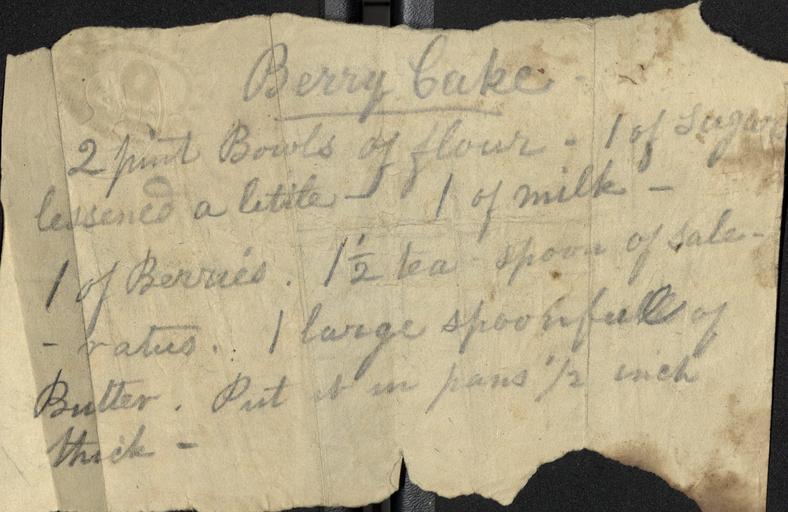 Berry Cake -
2 pint Bowls of flour - 1 of sugar
lessened a little - 1 of milk -
1 of Berries. 1 1/2 tea spoon of sale-
- ratus. 1 large spoonfull of
Butter. Put it in pans 1/2 inch
thick -